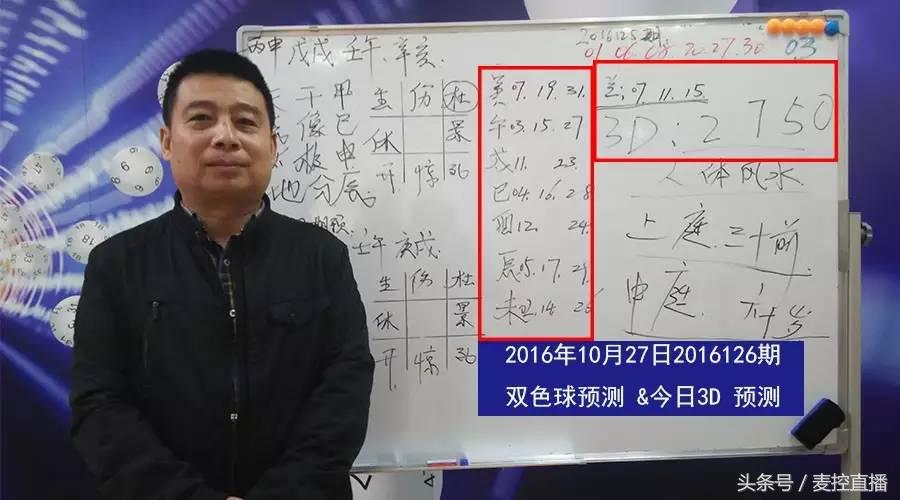 2016125期
01.06.08.20.27.30 03
丙申 戊戌 壬午 辛亥
天干甲
像巳
申
地分辰
生 伤 杜
休 景
开 惊 36
壬午 庚戌
生 伤 杜
休 景
开 惊 36
07.19.31.
午03.15.27
戌11. 23.
巳04.16.28
酉12. 24.
辰05.17.29
未02.14.26
兰:07.11.15
3D:2750
人体风水
上庭.三十前
中庭 六十岁
2016年10月27日2016126期
双色球预测 &今日3D 预测
头条号 / 麦控直播